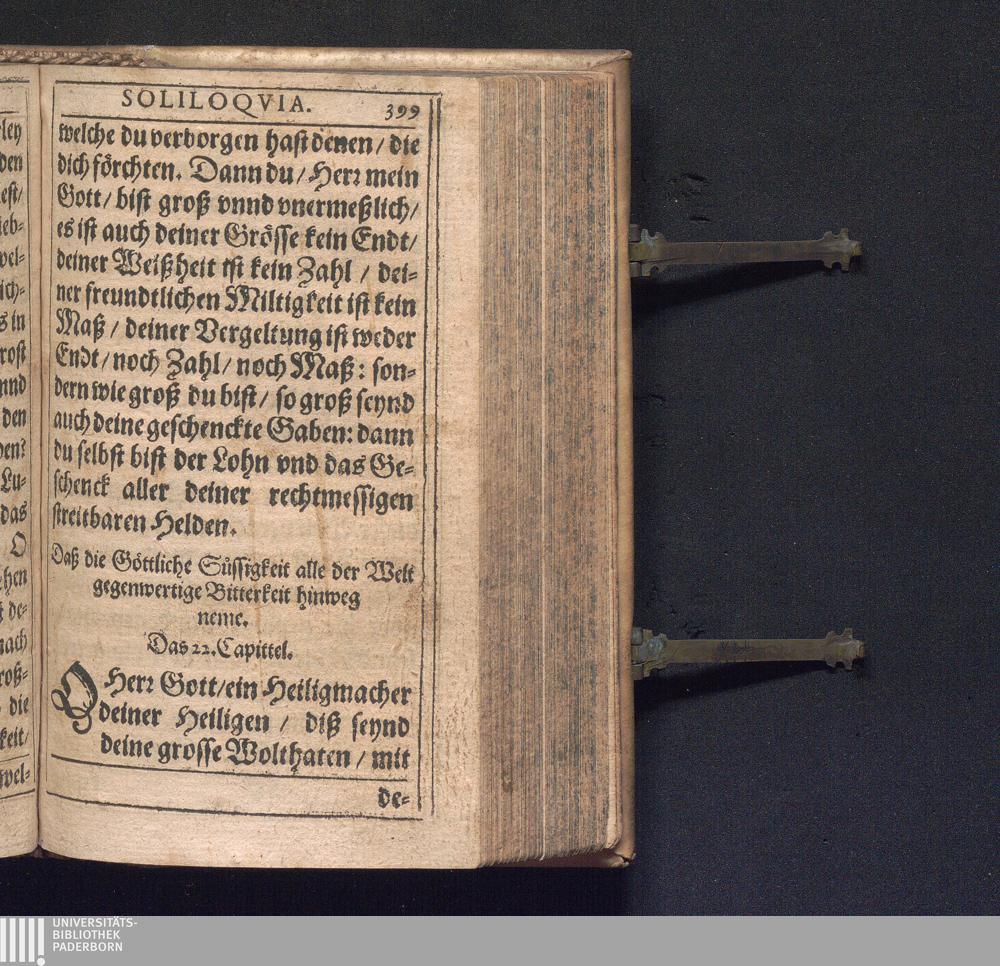 SOLILOQVIA. 399
welche du verborgen hast denen / die
dich förchten. Dann du / Herꝛ mein
Gott / bist groß vnnd vnermeßlich /
es ist auch deiner Grösse kein Endt /
deiner Weißheit ist kein Zahl / dei-
ner freundtlichen Miltigkeit ist kein
Maß / deiner Vergeltung ist weder
Endt / noch Zahl / noch Maß: son-
dern wie groß du bist / so groß seynd
auch deine geschenckte Gaben: dann
du selbst bist der Lohn vnd das Ge-
schenck aller deiner rechtmessigen
streitbaren Helden.
Daß die Göttliche Süssigkeit alle der Welt
gegenwertige Bitterkeit hinweg
neme.
Das 22. Capittel.
O Herꝛ Gott / ein Heiligmacher
deiner Heiligen / diß seynd
deine grosse Wolthaten / mit
de-
UNIVERSITÄTS-
BIBLIOTHEK
PADERBORN